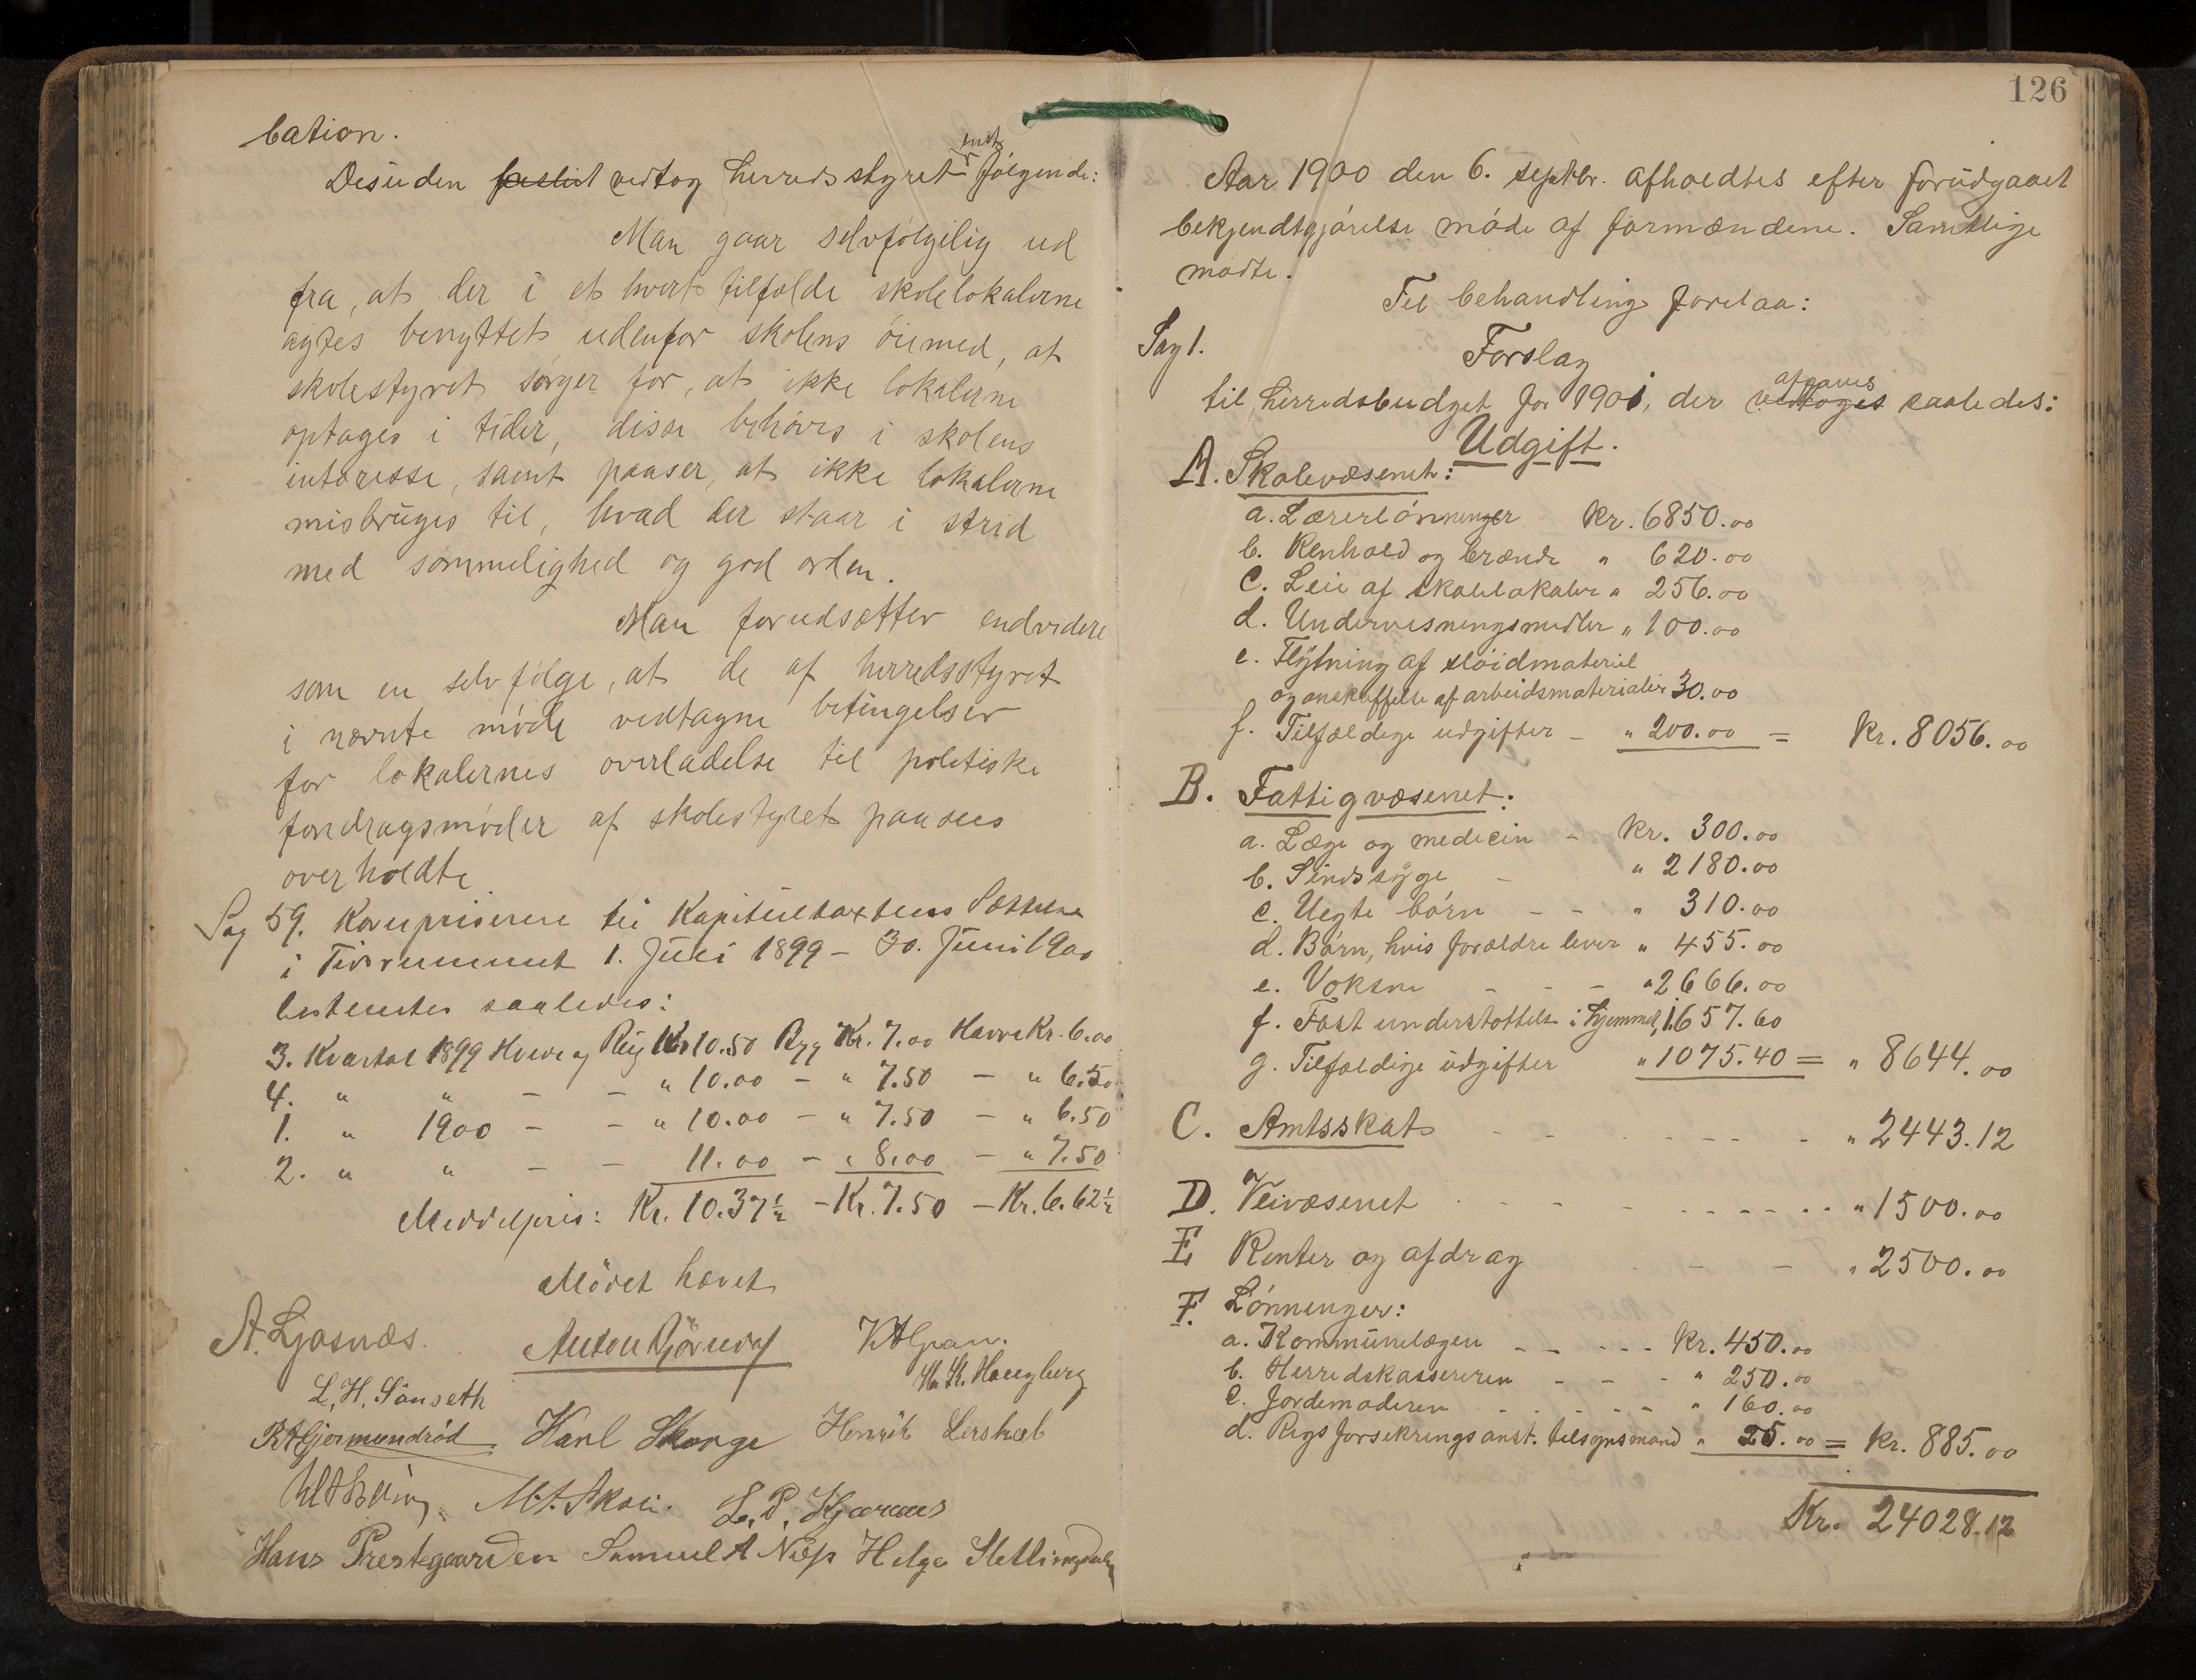 bation.
Desuden beslut vedtog herredsstyret enst. følgende:
Man gaar selvfølgelig ud
fra, at der i et hvert tilfælde skolelokalerne
agtes benyttet udenfor skolens øiemed, at
skolestyret sørger for, at ikke lokalerne
optages i tider, disse behøves i skolens
interesse, samt paaser, at ikke lokalerne
misbruges til, hvad der staar i strid
med sømmelighed og god orden.
Man forudsætter endvidere
som en selvfølge, at de af herredsstyret
i nævnte møde vedtagne betingelser
for lokalernes overladelse til politiske
fordragsmøder af skolestyret paasees
overholdte.
Sag 59. Kornpriserne til Kapitueltaxtens Sættelse
i Tidsrummet 1. Juli 1899 - 30. Juni 1900
bestemtes saaledes:
3. Kvartal 1899 Hvede og Rug Kr. 10.50 Byg Kr. 7.00 Havre Kr. 6.00
4. " " - - " 10.00 - " 7.50 - " 6.50
1. " 1900 - - " 10.00 - " 7.50 - " 6.50
2. " " - - 11.00 - " 8.00 - " 7.50
Middelpris: Kr. 10.37½ - Kr. 7.50 - Kr. 6.62½
Mødet hævet
A. Ljosnæs. Anton Gjørudal K A Gran.
H. K. Haugberg
L. H. Sönseth
R A Gjermundrød Karl Skorge Henrik Lerskal
M. A. Skoli. L. P. Kjærnæs
Hans Prestegaarden Samuel A Næss Helge Slettingdalen
126
Aar 1900 den 6. septbr. afholdtes efter forudgaaet
bekjendtgjørelse møde af formændene. Samtlige
mødte.
Til behandling forelaa:
Sag 1.
Forslag
til herredsbudget for 1901, der vedtoges afgaves saaledes:
Udgift.
A. Skolevæsenet:
a. Lærerlønninger Kr. 6850.00
b. Renhold og brænde " 620.00
c. Leie af skolelokaler " 256.00
d. Undervisningsmidler " 100.00
e. Flytning af sløidmateriel
og anskaffelse af arbeidsmaterialier 30.00
f. Tilfældige udgifter - " 200.00 = Kr. 8056.00
B. Fattigvæsenet:
a. Læge og medicin - Kr. 300.00
b. Sindssyge - " 2180.00
c. Uegte børn - - " 310.00
d. Børn, hvis forældre lever " 455.00
e. Voksne - - - " 2666.00
f. Fast understøttelse i hjemmet, 1657.60
g. Tilfældige udgifter " 1075.40 = " 8644.00
C. Amtsskat - - - - - - - " 2443.12
D. Veivæsenet - - - - - - - - " 1500.00
E Renter og afdrag - - - " 2500.00
F. Lønninger:
a. Kommunelægen - - - - - Kr. 450.00
b. Herredskassereren - - - " 250.00
c. Jordemoderen - - - - - " 160.00
d. Rigsforsikringsanst. tilsynsmand " 25.00 = Kr. 885.00
Kr. 24028.12